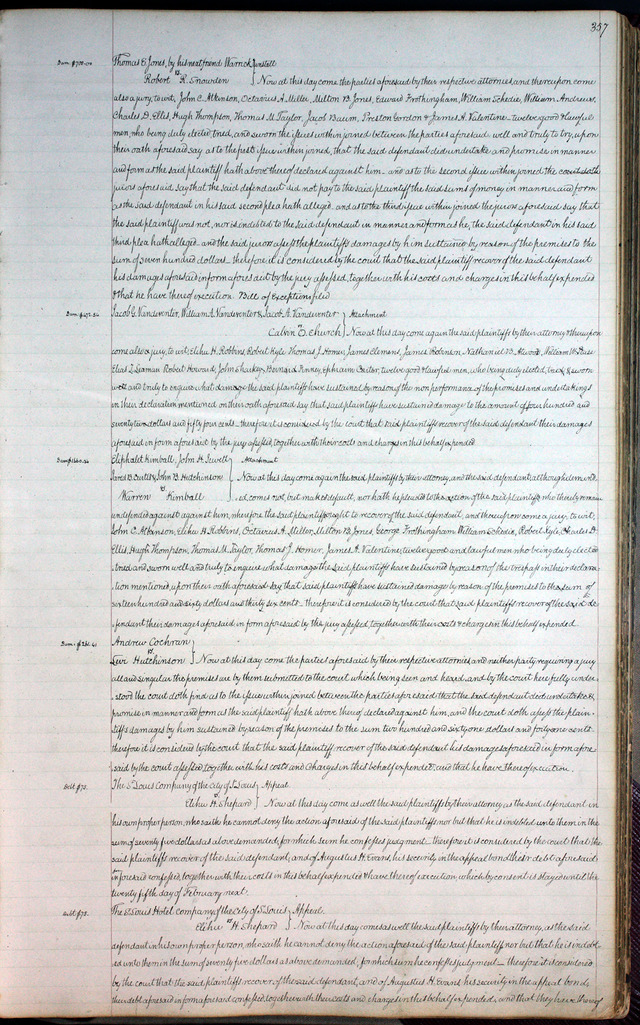 357
Dam. $700.00 Thomas E. Jones, by his next friend Warrick Tunstall
vs
Robert R. Snowden } Now at this day come the parties aforesaid by their respective attornies, and thereupon come
also a jury, to wit, John C. Atkinson, Octavius A. Miller, Milton B. Jones, Edward Frothingham, William Schedie, William Andrews,
Charles D. Ellis, Hugh Thompson, Thomas M. Taylor, Jacob Baum, Preston Gordon & James A. Valentine twelve good & lawful
men, who being duly elected, tried, and sworn the issues within joined between the parties aforesaid well and truly to try, upon
their oath aforesaid say as to the first issue within joined, that the said defendant did undertake and promise in manner
and form as the said plaintiff hath above thereof declared against him. and as to the second issue within joined the
jurors aforesaid say that the said defendant did not pay to the said plaintiff the said sums of money in manner and form
as the said defendant in his said second plea hath alleged. and as to the third issue within joined the jurors aforesaid say that
the said plaintiff was not, nor is indebted to the said defendant in manner and form as he, the said defendant in his said
third plea hath alleged. and the said jurors assess the plaintiffs damages by him sustained by reason of the premises to the
sum of seven hundred dollars therefore it is considered by the court that the said plaintiff recover of the said defendant
his damages aforesaid in form aforesaid by the jury assessed, together with his costs and charges in this behalf expended
& that he have thereof execution. Bill of Exceptions filed
Jacob G. Vandeventer, William A. Vandeventer & Jacob A. Vandeventer } Attachment
Calvin E. Church } Now at this day come again the said plaintiffs by their attorney & thereupon
come also a jury, to wit, Elihu H. Robbins, Robert Kyle, Thomas J. Homer, James Clemens, James Robinson, Nathaniel B. Atwood, William W.
Elias L. Seaman, Robert Howard, John Sharkey, Bernard Finney, Ephraim Carter, twelve good & lawful men, who being duly elected, tried & sworn
well and truly to enquire what damage the said plaintiffs have sustained by reason of the non performance of the promises and undertakings
in their declaration mentioned on their oath aforesaid say that said plaintiffs have sustained damage to the amount of four hundred and
seventy two dollars and fifty four cents. therefore it is considered by the court that said plaintiffs recover of the said defendant their damages
aforesaid in form aforesaid by the jury assessed, together with their costs and charges in this behalf expended
Eliphalet Kimball, John H. Jewell } Attachment
Jared B. Curtis, John B. Hutchinson } Now at this day come again the said plaintiffs by their attorney, and the said defendant, although demand-
vs
Warren Kimball } ed, comes not, but makes default, nor hath he pleaded to the action of the said plaintiffs who thereby remain
undefended against him, wherefore the said plaintiffs ought to recover of the said defendant, and thereupon come a jury, to wit,
John C. Atkinson, Elihu H. Robbins, Octavius A. Miller, Milton B. Jones, George Frothingham, William Schedie, Robert Kyle, Charles D.
Ellis, Hugh Thompson, Thomas M. Taylor, Thomas J. Homer, James A. Valentine, twelve good and lawful men who being duly elected
tried and sworn well and truly to enquire what damage the said plaintiffs have sustained by reason of the trespass in their declara-
tion mentioned, upon their oath aforesaid say that said plaintiffs have sustained damages by reason of the premises to the sum of
sixteen hundred and sixty dollars and thirty six cents. therefore it is considered by the court that said plaintiffs recover of the said de-
fendant their damages aforesaid in form aforesaid by the jury assessed, together with their costs & charges in this behalf expended.
Andrew Cochran }
vs
Levi Hutchinson } Now at this day come the parties aforesaid by their respective attornies and neither party requiring a jury
all and singular the premises are by them submitted to the court which being seen and heard, and by the court here fully under-
stood the court doth find as to the issue within joined between the parties aforesaid that the said defendant did undertake &
promise in manner and form as the said plaintiff hath above thereof declared against him, and the court doth assess the plain-
tiffs damages by him sustained by reason of the premises to the sum two hundred and sixty one dollars and forty one cents.
therefore it is considered by the court that the said plaintiff recover of the said defendant his damages aforesaid in form afore-
said by the court assessed, together with his costs and charges in this behalf expended, and that he have thereof execution.
Debt $75. The St Louis Company of the City of St Louis } Appeal
vs
Elihu H. Shepard } Now at this day come as well the said plaintiffs by their attorney as the said defendant in
his own proper person, who saith he cannot deny the action aforesaid of the said plaintiffs nor but that he is indebted unto them in the
sum of seventy five dollars as above demanded, for which sum he confesses judgment. therefore it is considered by the court that the
said plaintiffs recover of the said defendant, and of Augustus H. Evans, his security in the appeal bond their debt aforesaid
in form aforesaid confessed, together with their costs in this behalf expended & have thereof execution, which by consent is stayed until the
twenty fifth day of February next.
Debt $75. The St Louis Hotel Company of the City of St Louis } Appeal.
vs
Elihu H. Shepard } Now at this day comes as well the said plaintiffs by their attorney, as the said
defendant in his own proper person, who saith he cannot deny the action aforesaid of the said plaintiff nor but that he is indebt
ed unto them in the sum of seventy five dollars as above demanded, for which sum he confesses judgment therefore it is considered
by the court that the said plaintiffs recover of the said defendant, and of Augustus H. Evans, his security in the appeal bond
their debt aforesaid in form aforesaid confessed, together with their costs and charges in this behalf expended, and that they have thereof